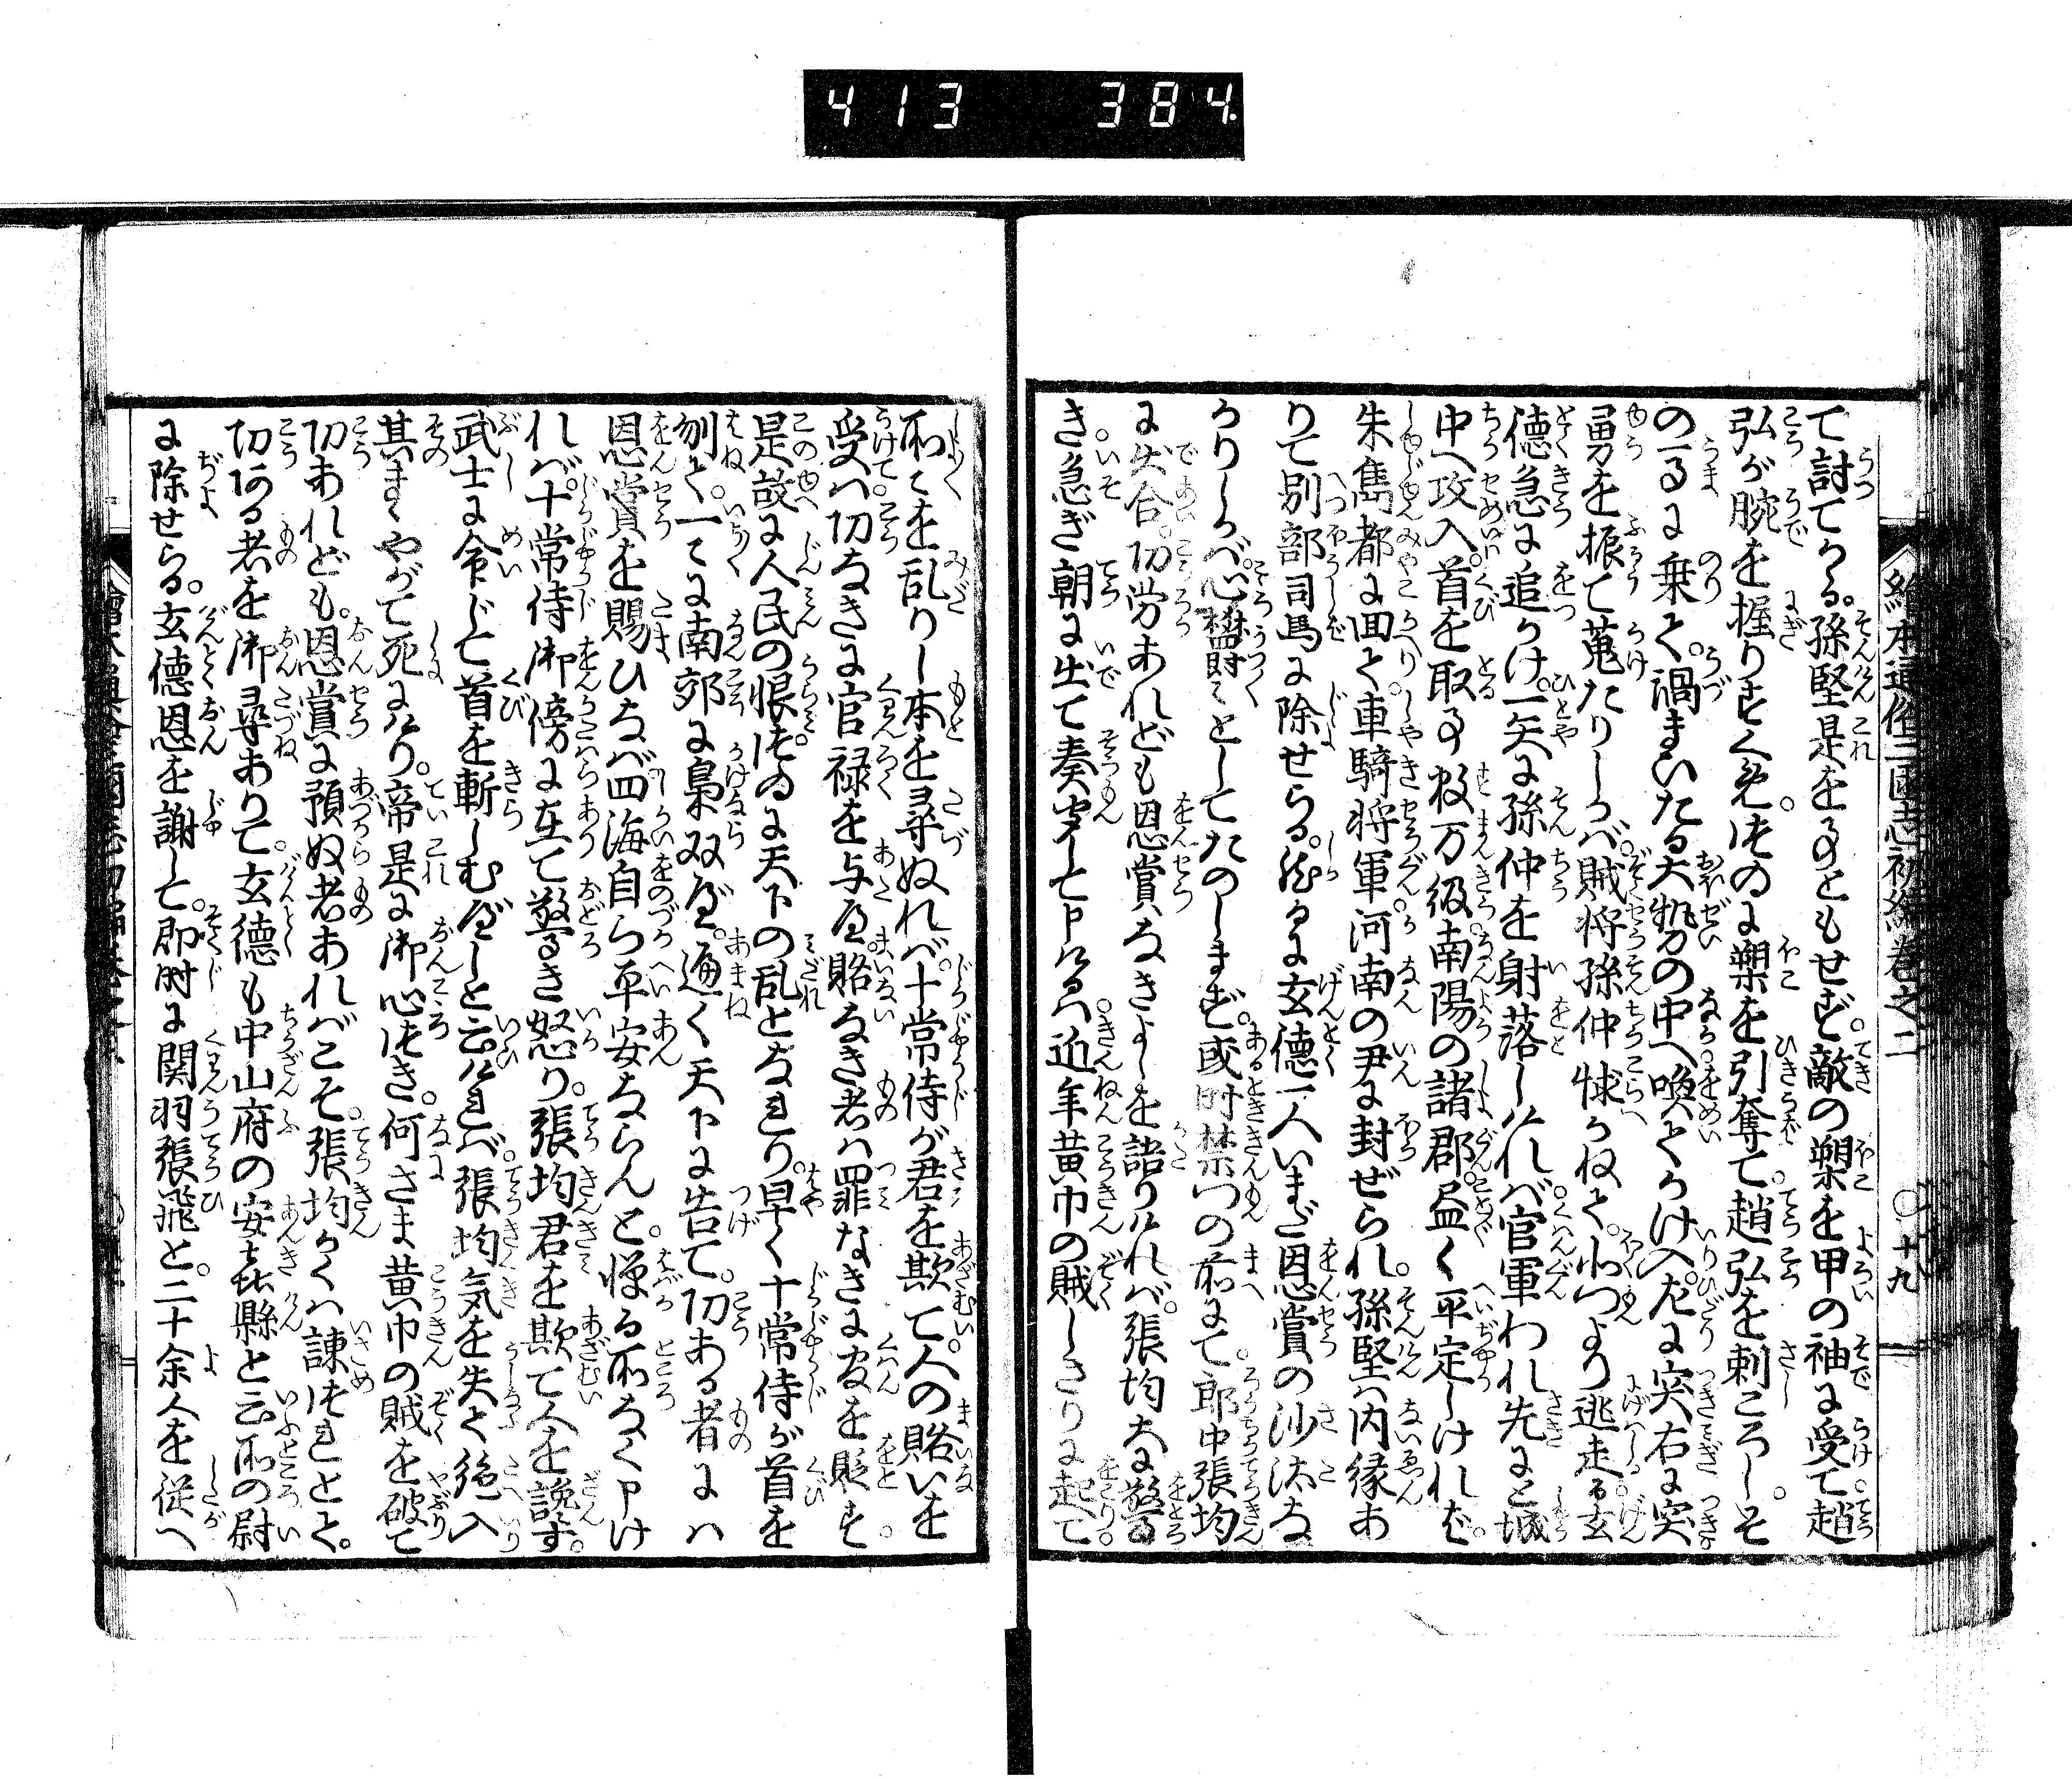 413 384.
繪本通俗三国志初編巻之二 ○十九
て討てかる。孫堅是をこともせず。敵の槊を甲の袖に受て。趙
弘が腕を握りすくめ。其ゐに槊を引奪て。趙弘を刺ころし。そ
の馬に乗て。渦まいたる大勢の中へ喚てかけ入。左に突右に突
勇を振て蒐たりしかば。賊将孫仲怺かねて。北門より逃走る。玄
徳急に追かけ。一矢に孫仲を射落しければ。官軍われ先にと城
中へ攻入。首を取る事数万級。南陽の諸郡。尽く平定しければ。
朱雋都に回て。車騎将軍。河南の尹に封ぜられ。孫堅は内縁あ
りて別部司馬に除せらる。然るに玄徳一人いまだ恩賞の沙汰な
かりしかば。心欝々としてたのしまず。或時禁門の前にて。郎中張均
に出合。功労あれども恩賞なきよしを語りければ。張均大に驚
き。急ぎ朝に出て奏聞して申けるは。近年黄巾の賊しきりに起て
所々を乱りし本を尋ぬれば。十常侍が君を欺て。人の賂いを
受て。功なきに官禄を与へ。賂なき者は罪なきに官を貶す。
是故に人民の恨ゐに天下の乱となれり。早く十常侍が首を
刎て。一々に南郊に梟双べ。遍く天下に告て。功ある者には
恩賞を賜ひなば四海自ら平安ならんと。憚る所なく申け
れば。十常侍御傍に在て驚き怒り。張均君を欺て人を讒す。
武士に命じて首を斬しむべしと云ければ。張均気を失て絶入
其まゝやがて死にけり。帝是に御心つき。何さま黄巾の賊を破て
功あれども。恩賞に預ぬ者あればこそ。張均かくは諫つれとて。
功ある者を御尋ありて。玄徳も中山府の安喜縣と云所の尉
に除せらる。玄徳恩を謝して。即時に関羽張飛と。二十余人を従へ